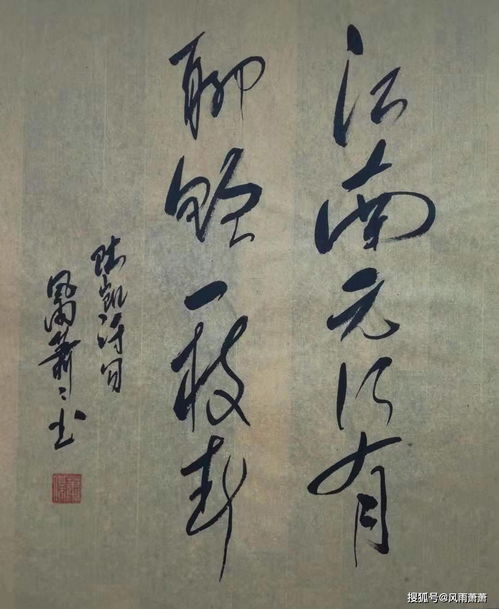 江南无所有
聊赠一枝春
陆凯诗句
风雨萧々书
搜狐号@风雨萧萧